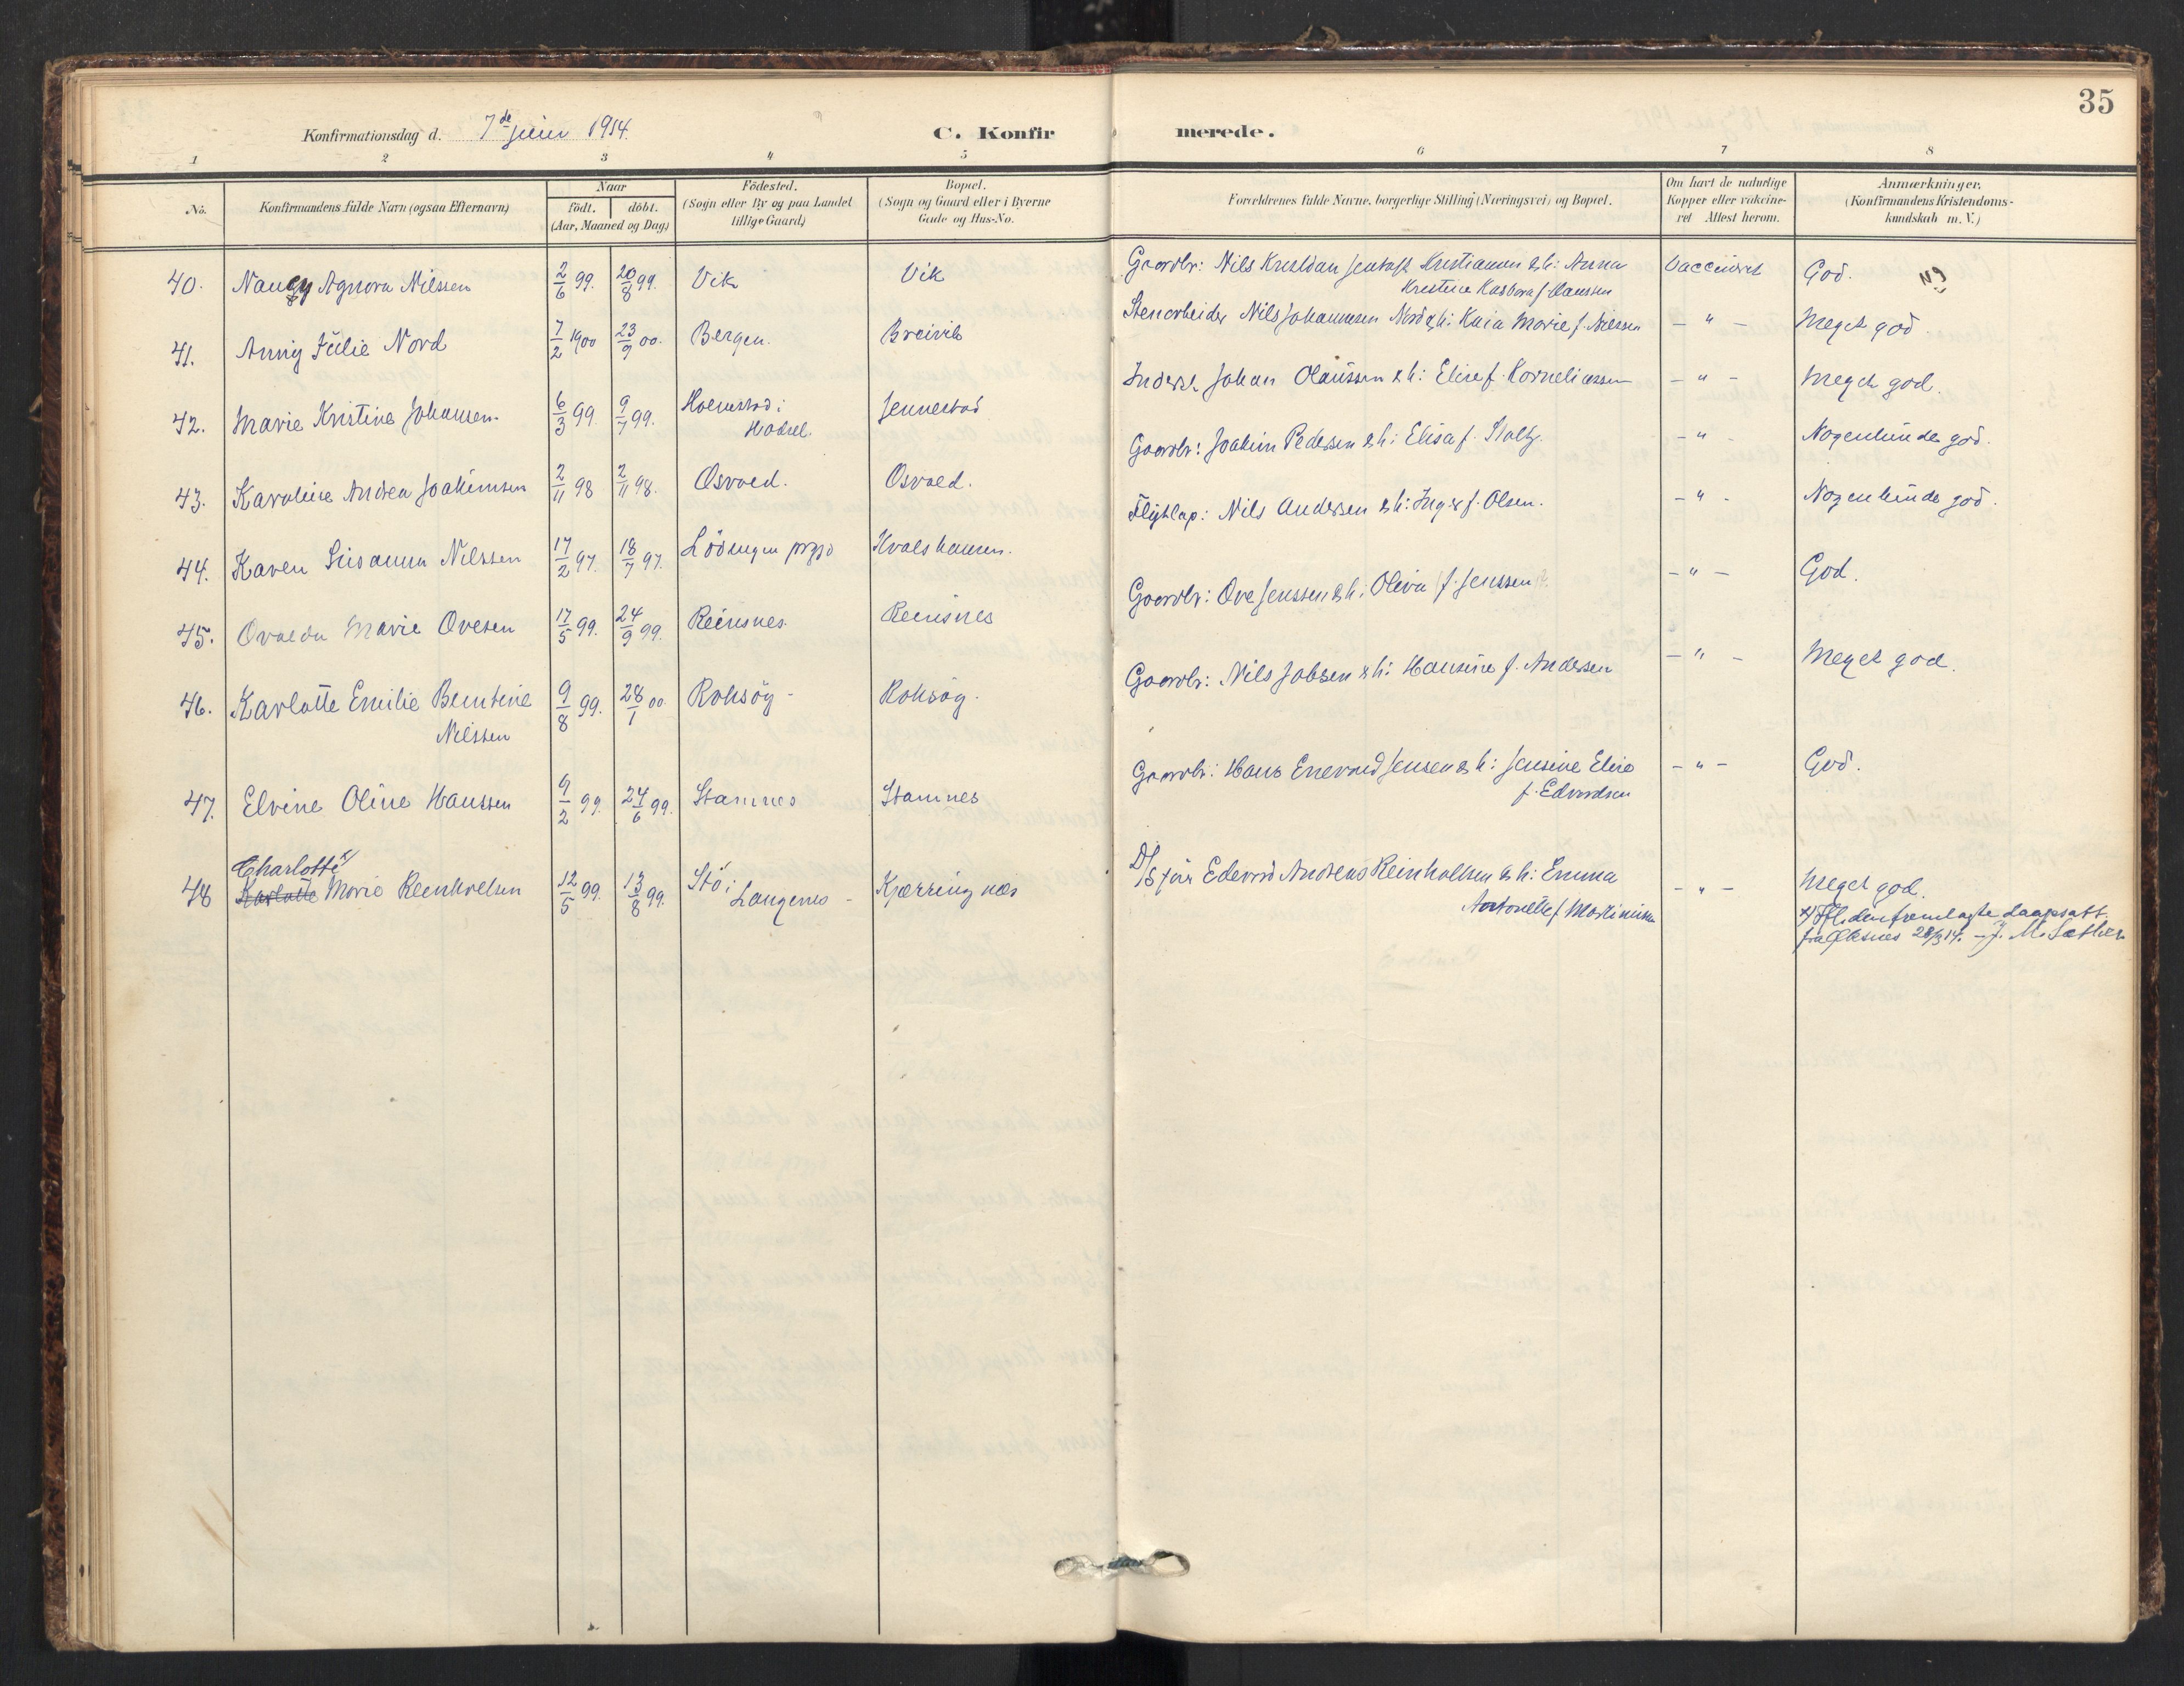 35
Konfirmationsdag d. 7de juni 1914.
C. Konfirmerede.
1 2 3 4 5 6 7 8
No.
Konfirmandens fulde Navn (ogsaa Efternavn)
Naar
födt. döbt.
(Aar, Maaned og Dag)
Födested.
(Sogn eller By og paa Landet
tillige Gaard)
Bopæl.
(Sogn og Gaard eller i Byerne
Gade og Hus-No.
Forældrenes fulde Navne, borgerlige Stilling (Næringsvei) og Bopæl.
Om havt de naturlige
Kopper eller vakcine-
ret Attest herom.
Anmærkninger.
(Konfirmandens Kristendoms-
kundskab m. V.)
40. Nancy Agnora Nilssen 2/6 99. 20/8 99. Vik Vik Gaardbr: Nils Kristian Kristiansen & h: Anna Vaccineret God.
Kristine f. Hanssen
41. Anny Julie Nord 7/2 1900 23/9 00. Bergen. Breivik Stenarbeider Nils Johannesen Nord & h: Kaia Marie f. Nilssen - " - Meget god.
42. Marie Kristine Johansen. 6/3 99 9/7 99. Holmstad i Jennestad Inderst Johan Olaussen & h: Elise f. Korneliussen - " - Meget god.
Hadsel.
43. Karoline Andrea Joakimsen 2/11 98 2/11 98. Osvold. Osvold. Gaardbr: Joakim Pedersen & h: Elisa f. Stoltz. - " - Nogenlunde god.
44. Karen Susanna Nilssen 17/2 97. 18/7 97. Lödingen prgjd Kvalshausen. Flytlap: Nils Andersen & h: Inger f. Olsen. - " - Nogenlunde god.
45. Ovaeda Marie Ovesen 17/5 99. 24/9 99. Reinsnes. Reinsnes Gaardbr: Ove Jenssen & h: Oliva f. Jenssen - " - God.
46. Karlotte Emilie Berntine 9/8 99. 28/1 00. Roksöy - Roksöy. Gaardbr: Nils Jobsen & h: Hansine f. Andersen - " - Meget god.
Nilssen
47. Elvine Oline Hanssen 9/2 99. 24/6 99. Stamnes Stamnes Gaardbr: Hans Enevold Jensen & h: Jensine Elise - " - God.
f. Edvardsen
Charlotte x/
48 Karlotte Marie Reinholtsen 12/5 99. 13/8 99. Stö i Langenes - Kjærringnæs D/S förer Edvard Andreas Reinholtsen & h: Emma - " - Meget god.
Antonette f. Martinussen
x/ Ifl. den fremlagte daapsatt.
fra Öksnes 28/3 14. - J. M. Sæther